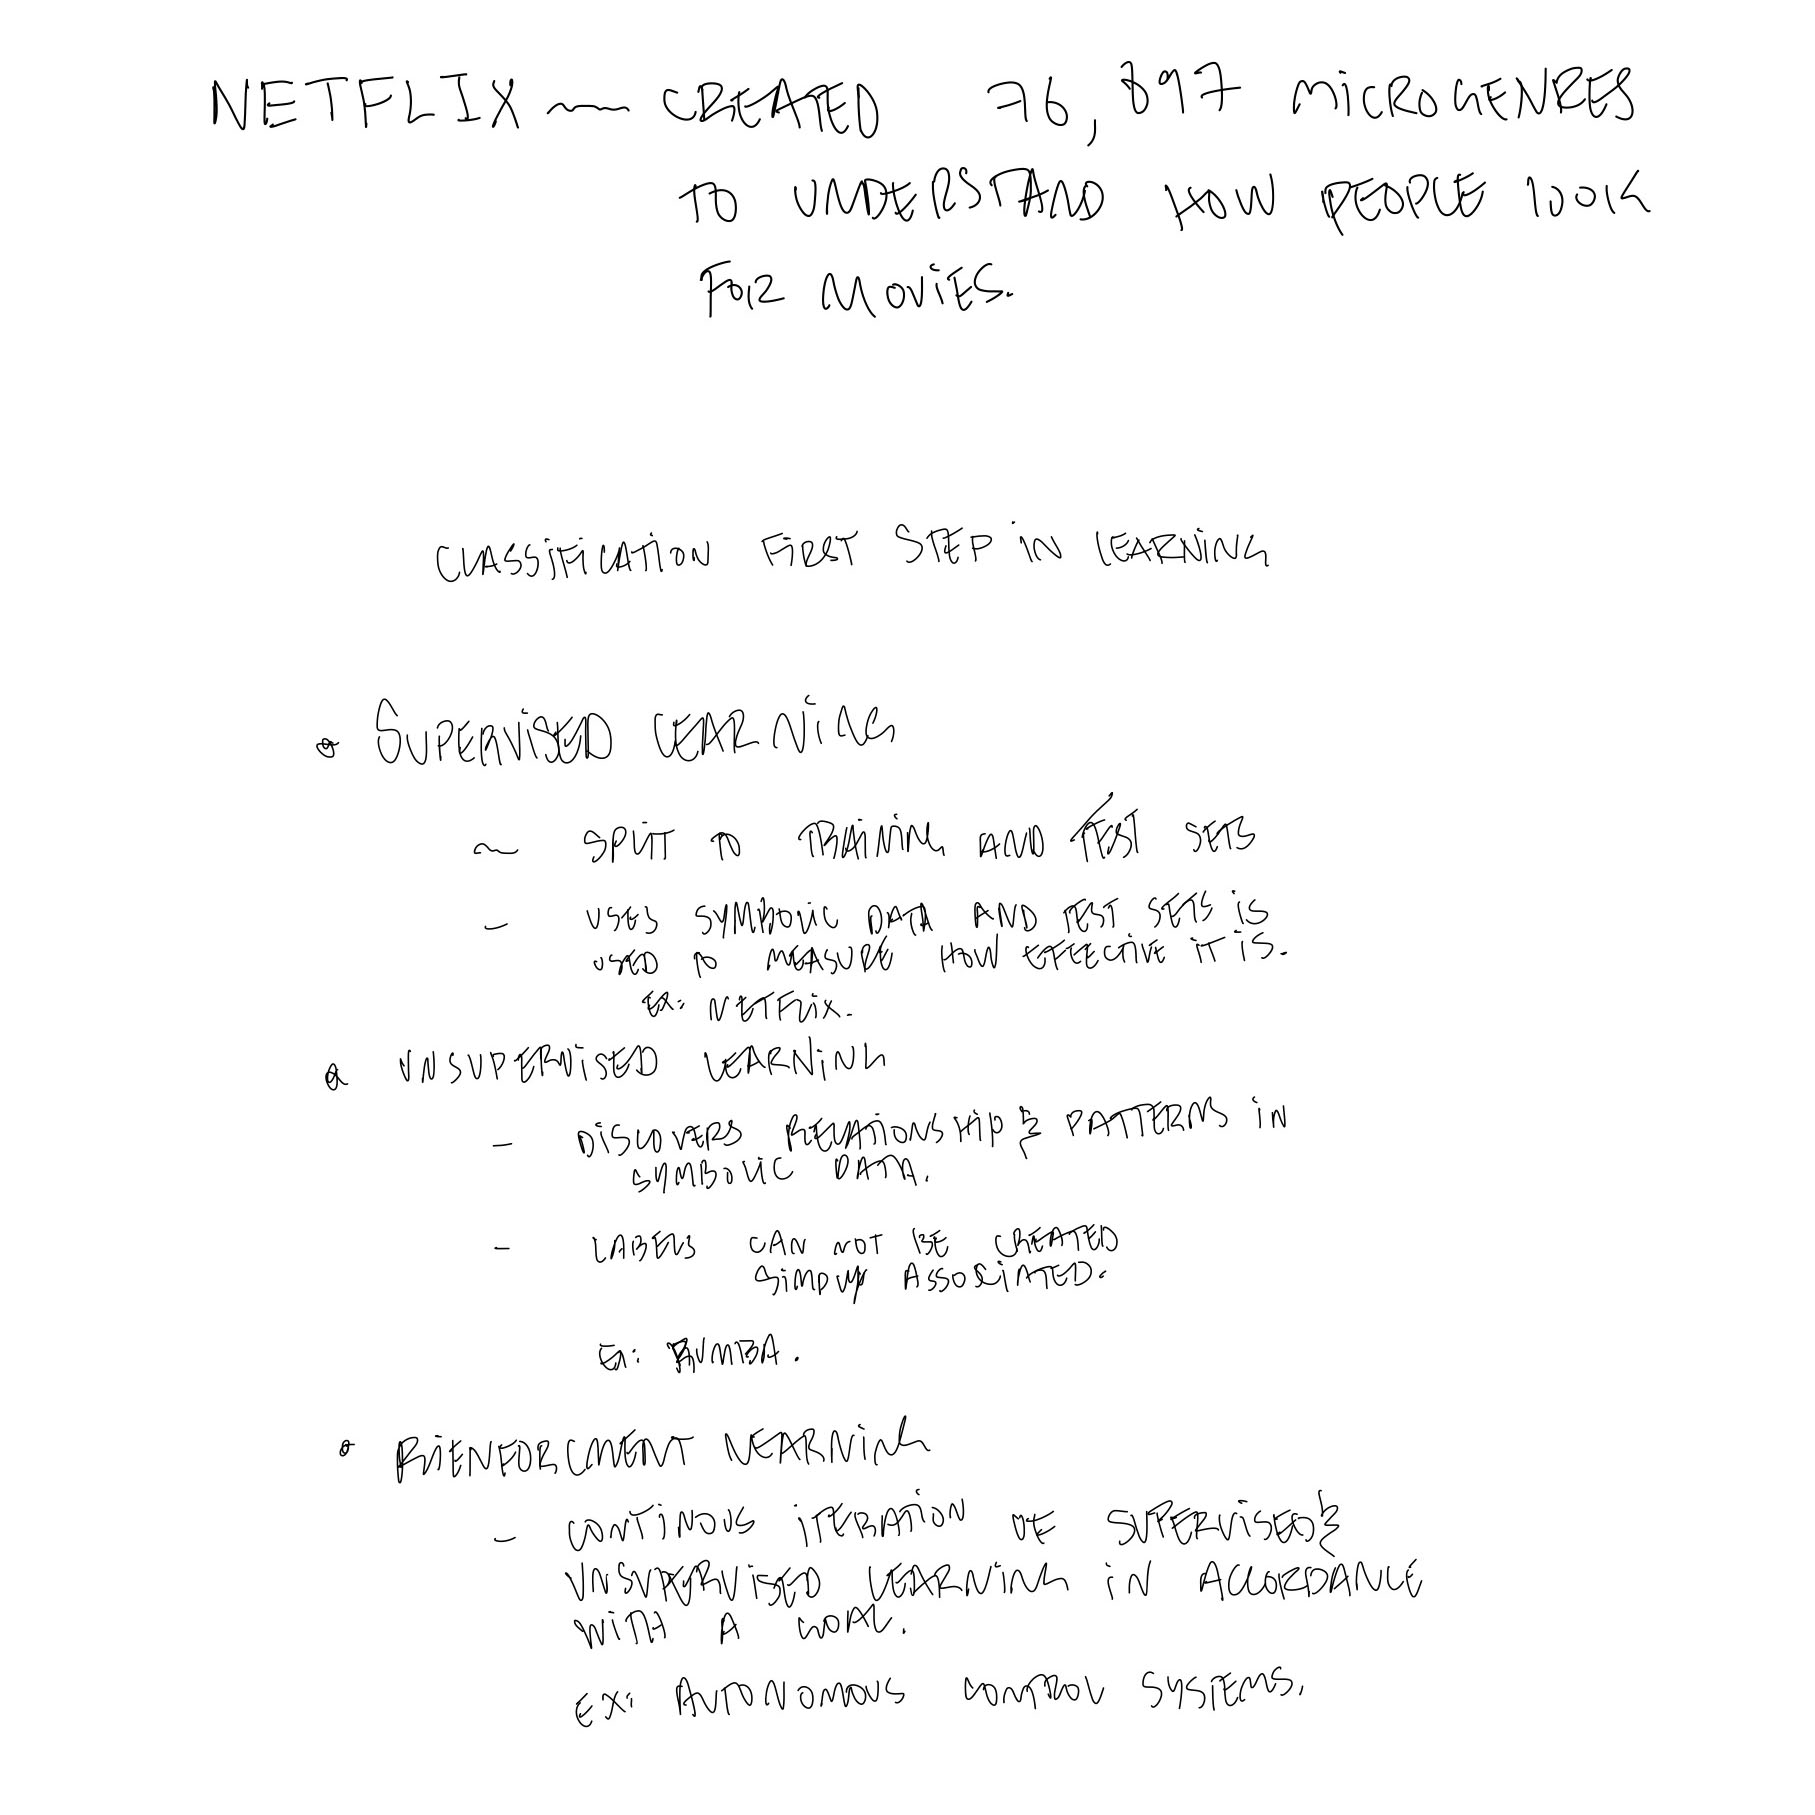 NETFLIX — CREATED 76,897 MICROGENRES
TO UNDERSTAND HOW PEOPLE LOOK
FOR MOVIES.
CLASSIFICATION FIRST STEP IN LEARNING
• SUPERVISED LEARNING
~ SPLIT TO TRAINING AND TEST SETS
- USES SYMBOLIC DATA AND TEST SETS IS
USED TO MEASURE HOW EFFECTIVE IT IS.
EX: NETFLIX.
• UNSUPERVISED LEARNING
- DISCOVERS RELATIONSHIP & PATTERNS IN
SYMBOLIC DATA.
- LABELS CAN NOT BE CREATED
SIMPLY ASSOCIATED.
EX: RUMBA.
• RIENFORCMENT LEARNING
- CONTINOUS ITERATION OF SUPERVISED &
UNSUPERVISED LEARNING IN ACCORDANCE
WITH A GOAL.
EX: AUTONOMOUS CONTROL SYSTEMS.